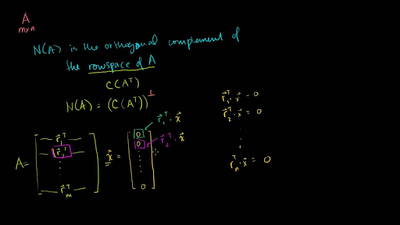 A
m×n
N(A) is the orthogonal complement of
the rowspace of A
C(Aᵀ)
N(A) = (C(Aᵀ))^⊥
A = [ r⃗₁ᵀ r⃗₂ᵀ ⋮ r⃗ₘᵀ ] x⃗ = [ 0 0 ⋮ 0 ]
r⃗₁ᵀ · x⃗
r⃗₂ᵀ · x⃗
r⃗₁ᵀ · x⃗ = 0
r⃗₂ᵀ · x⃗ = 0
⋮
r⃗ₘᵀ · x⃗ = 0